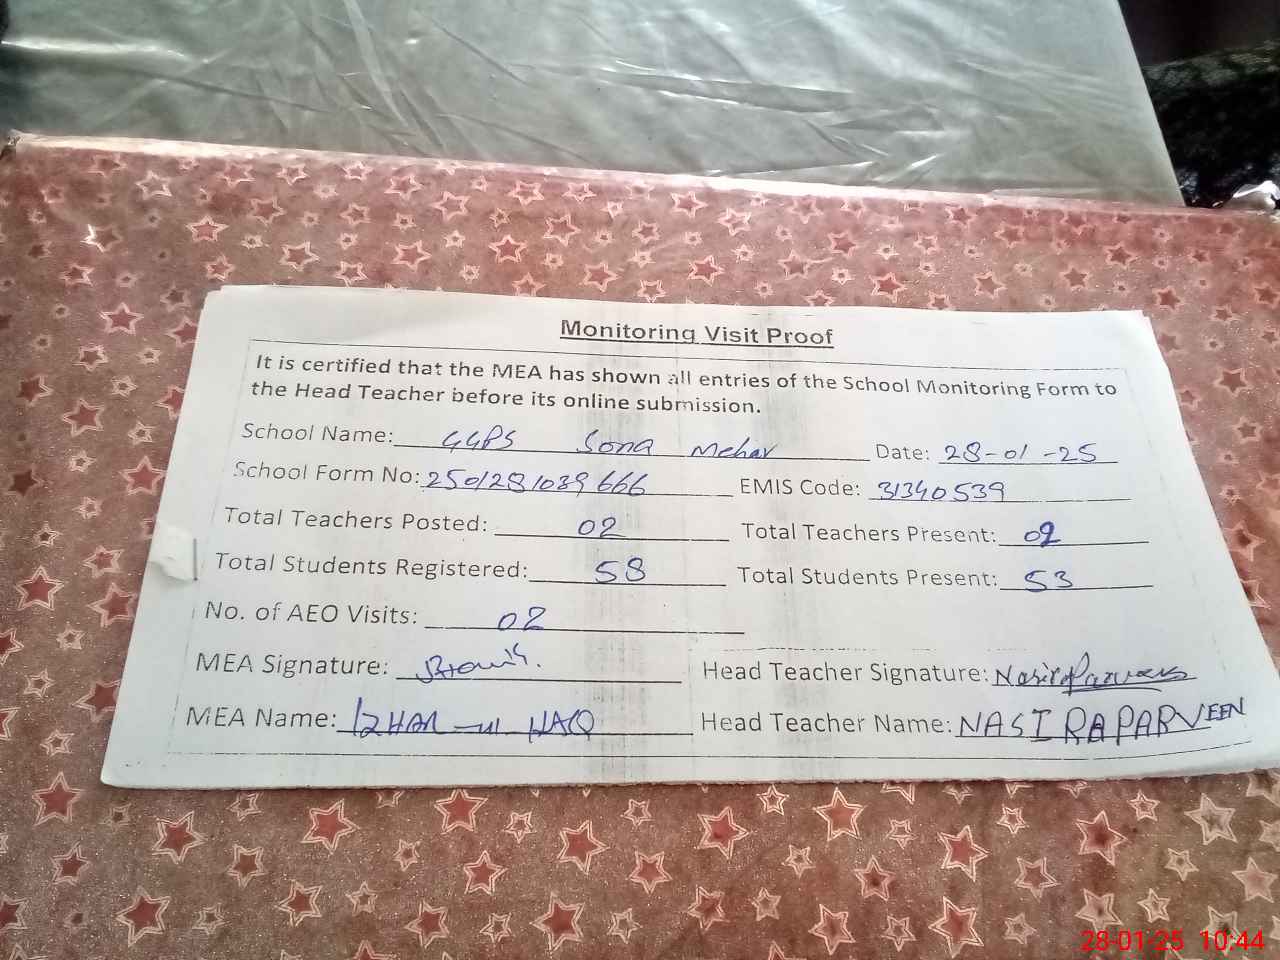 Monitoring Visit Proof
It is certified that the MEA has shown all entries of the School Monitoring Form to
the Head Teacher before its online submission.
School Name: GGPS Sona Mehar Date: 28-01-25
School Form No: 2501281039666 EMIS Code: 31340539
Total Teachers Posted: 02 Total Teachers Present: 02
Total Students Registered: 58 Total Students Present: 53
No. of AEO Visits: 02
MEA Signature: Head Teacher Signature: Nasira Parveen
MEA Name: IZHAR-ul-HAQ Head Teacher Name: NASIRA PARVEEN
28-01-25 10:44